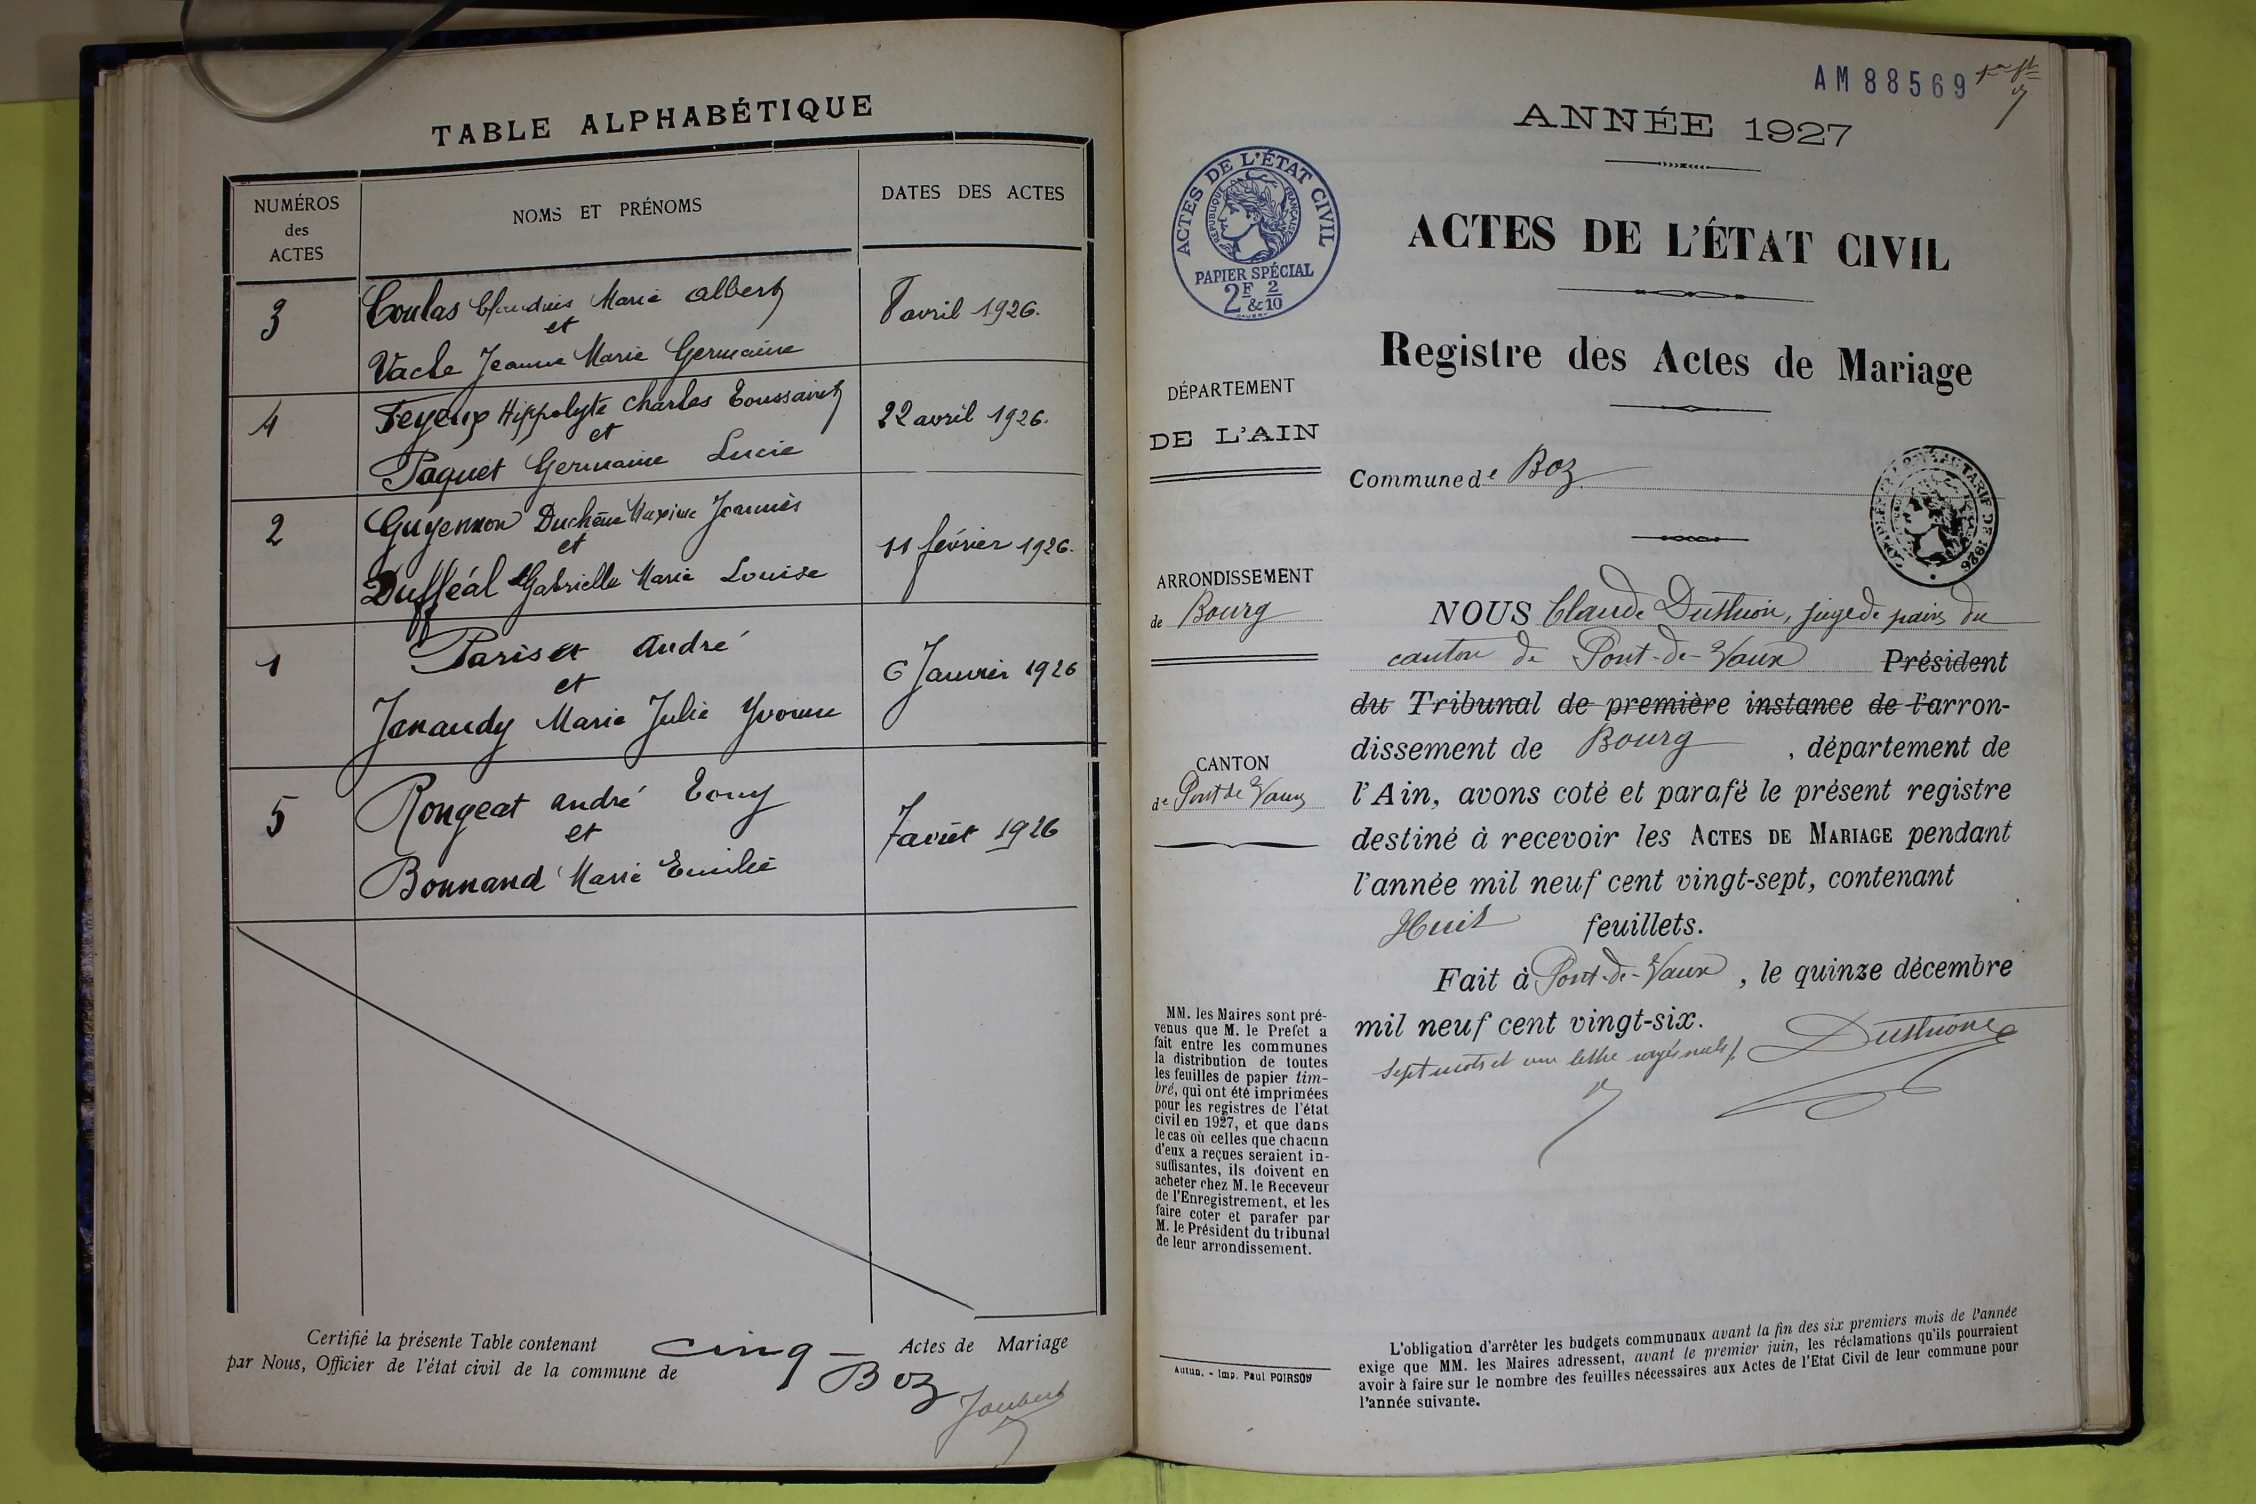 TABLE ALPHABÉTIQUE
NUMÉROS
des
ACTES
NOMS ET PRÉNOMS
DATES DES ACTES
3
Coulas Claudius Marie Albert
et
Vacle Jeanne Marie Germaine
8 avril 1926.
4
Feyeux Hippolyte Charles Toussaint
et
Paquet Germaine Lucie
22 avril 1926.
2
Guyennon Duchêne Maxime Joannès
et
Dufféal Gabrielle Marie Louise
11 février 1926.
1
Pariset André
et
Janaudy Marie Julie Yvonne
6 Janvier 1926
5
Rongeat André Tony
et
Bonnand Marie Emilie
7 août 1926
Certifié la présente Table contenant cinq Actes de Mariage
par Nous, Officier de l'état civil de la commune de Boz
Joubert
AM 88569
ANNÉE 1927
ACTES DE L'ÉTAT CIVIL
RÉPUBLIQUE FRANÇAISE
PAPIER SPÉCIAL
2F & 2/10
ACTES DE L'ÉTAT CIVIL
Registre des Actes de Mariage
DÉPARTEMENT
DE L'AIN
Commune de Boz
TARIF DE 1926
ARRONDISSEMENT
de Bourg
CANTON
de Pont de Vaux
NOUS Claude juge de paix du
canton de Pont-de-Vaux Président
du Tribunal de première instance de l'arron-
dissement de Bourg, département de
l'Ain, avons coté et parafé le présent registre
destiné à recevoir les ACTES DE MARIAGE pendant
l'année mil neuf cent vingt-sept, contenant
Huit feuillets.
Fait à Pont-de-Vaux, le quinze décembre
mil neuf cent vingt-six.
Sept mots et une lettre rayés nuls
MM. les Maires sont pré-
venus que M. le Préfet a
fait entre les communes
la distribution de toutes
les feuilles de papier tim-
bré, qui ont été imprimées
pour les registres de l'état
civil en 1927, et que dans
le cas où celles que chacun
d'eux a reçues seraient in-
suffisantes, ils doivent en
acheter chez M. le Receveur
de l'Enregistrement, et les
faire coter et parafer par
M. le Président du tribunal
de leur arrondissement.
Autun. - Imp. Paul POIRSON
L'obligation d'arrêter les budgets communaux avant la fin des six premiers mois de l'année
exige que MM. les Maires adressent, avant le premier juin, les réclamations qu'ils pourraient
avoir à faire sur le nombre des feuilles nécessaires aux Actes de l'Etat Civil de leur commune pour
l'année suivante.